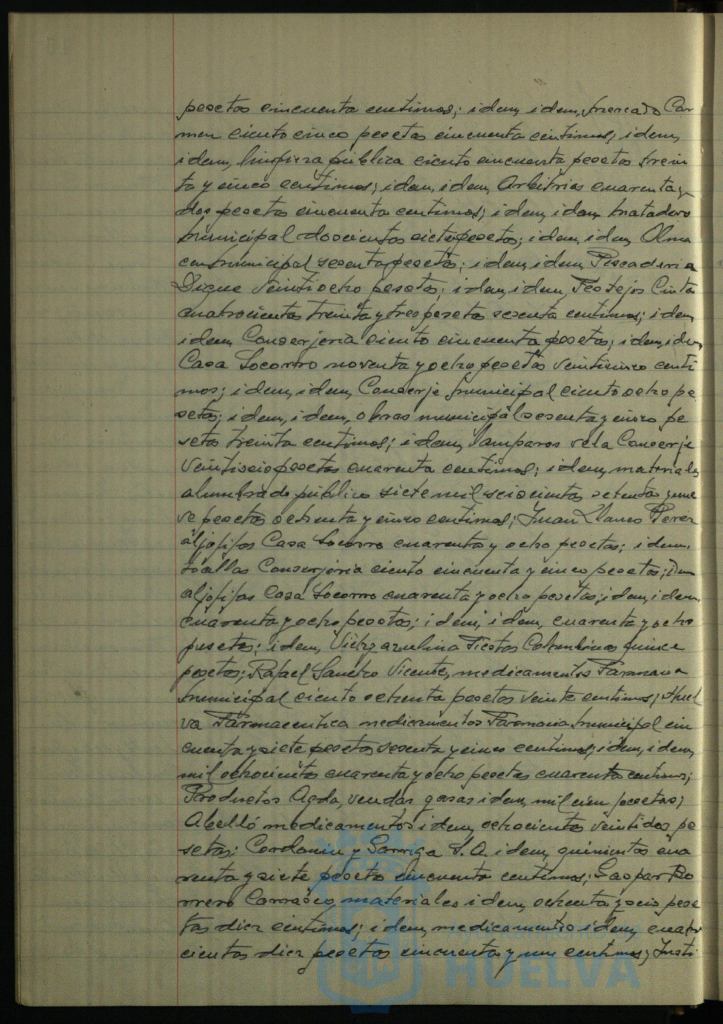 pesetas cincuenta centimos; idem, idem, mercado Car
men ciento cinco pesetas cincuenta centimos, idem,
idem, limpieza pública ciento cincuenta pesetas trein
ta y cinco centimos; idem, idem, Arbitrios cuarenta y
dos pesetas cincuenta centimos; idem, idem matadero
municipal doscientas siete pesetas; idem, idem Alma
cen municipal sesenta pesetas; idem, idem Pescaderia
Dique veintiocho pesetas; idem, idem Festejos Cinta
cuatrocientas treinta y tres pesetas sesenta centimos; idem
idem Conserjeria ciento cincuenta pesetas; idem, idem
Casa Socorro noventa y ocho pesetas veinticinco centi
mos; idem, idem, Conserje municipal ciento ocho pe
setas; idem, idem, obras municipal sesenta y cinco pe
setas treinta centimos; idem, lamparas Conserje
veintiseis pesetas cuarenta centimos; idem, materiales
alumbrado público siete mil seiscientas setenta y nue
ve pesetas ochenta y cinco centimos; Juan Llanes Perez
aljofifas Casa Socorro cuarenta y ocho pesetas; idem,
toallas Conserjeria ciento cincuenta y cinco pesetas; idem
aljofifas Casa Socorro cuarenta y ocho pesetas; idem, idem
cuarenta y ocho pesetas; idem, idem, cuarenta y ocho
pesetas; idem, Fiestas Colombinas quince
pesetas; Rafael Sancho Vicente, medicamentos Farmacia
municipal ciento ochenta pesetas veinte centimos; Huel
va Farmaceutica medicamentos Farmacia municipal cin
cuenta y siete pesetas sesenta y cinco centimos, idem, idem,
mil ochocientas cuarenta y ocho pesetas cuarenta centimos;
Productos Agda, vendas gasas idem, mil cien pesetas;
Abelló medicamentos idem, ochocientas veintidos pe
setas; y Sarriga S.A. idem, quinientas cua
renta y siete pesetas cincuenta centimos; Gaspar Ro
mero Carrasco, materiales idem, ochenta y seis pese
tas diez centimos; idem, medicamentos idem, cuatro
cientas diez pesetas cincuenta y un centimos; Insti
HUELVA